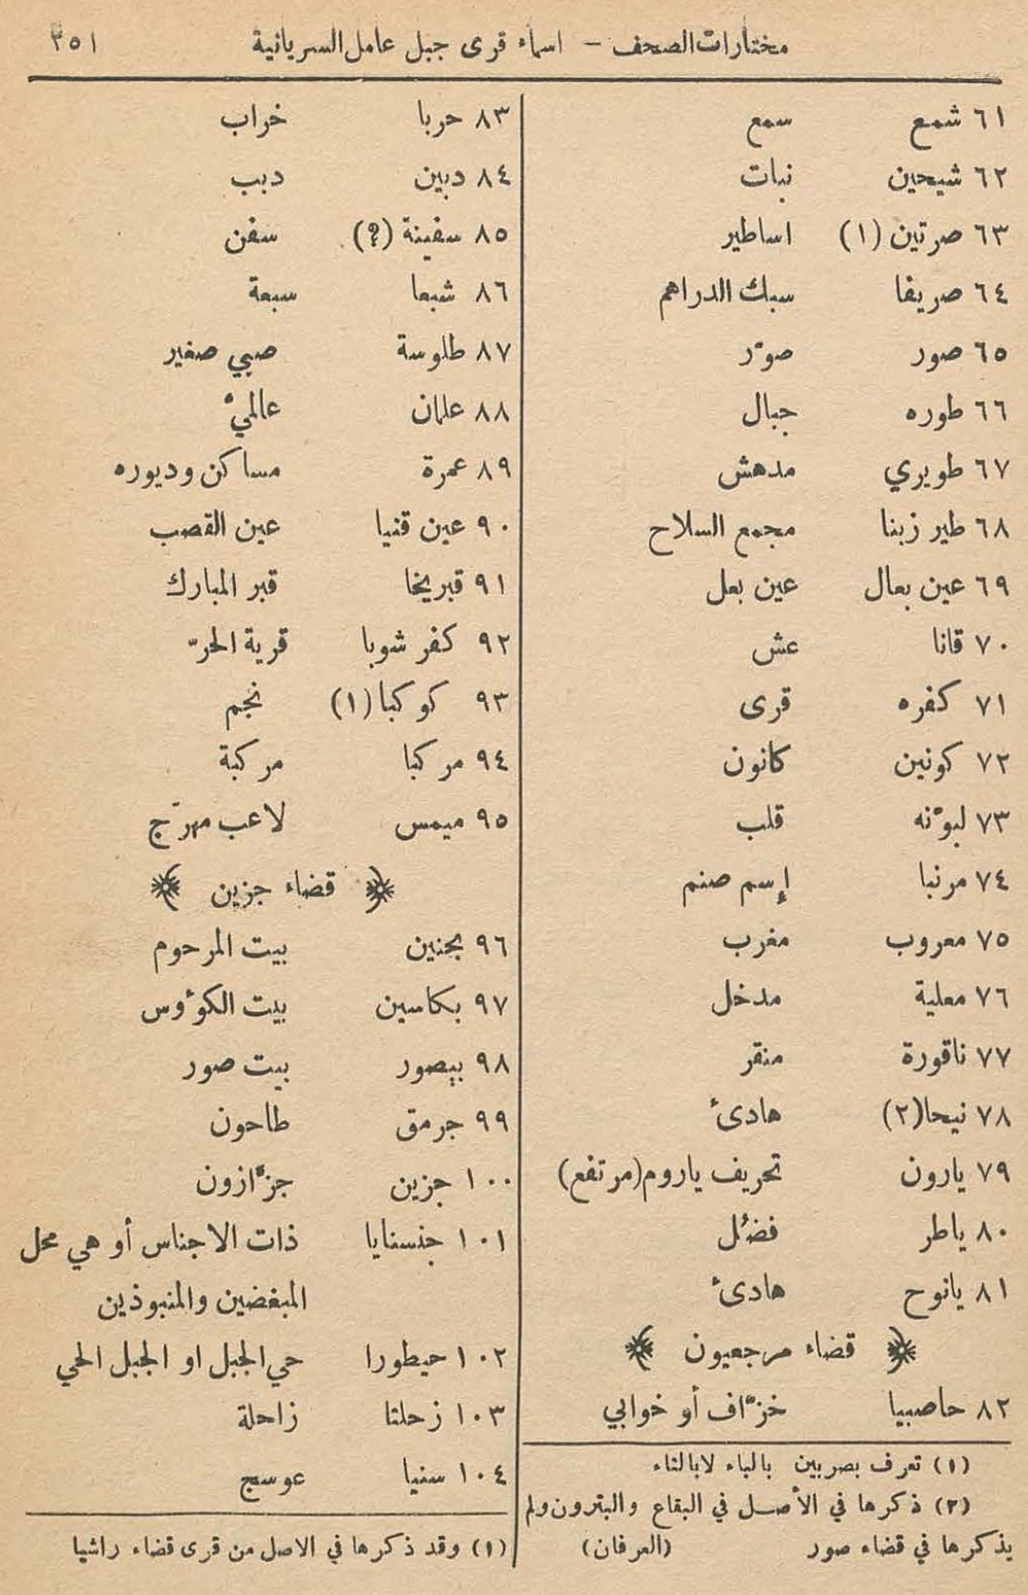 مختارات الصحف – اسماء قرى جبل عامل السريانية ٣٥١
٦١ شمع سمع
٦٢ شيحين نبات
٦٣ صرتين (١) اساطير
٦٤ صريفا سبك الدراهم
٦٥ صور صوّر
٦٦ طوره جبال
٦٧ طويري مدهش
٦٨ طير زبنا مجمع السلاح
٦٩ عين بعال عين بعل
٧٠ قانا عش
٧١ كفره قرى
٧٢ كونين كانون
٧٣ لبوّنه قلب
٧٤ مرنبا إسم صنم
٧٥ معروب مغرب
٧٦ معلية مدخل
٧٧ ناقورة منقر
٧٨ نيحا(٢) هادئ
٧٩ يارون تحريف ياروم(مرتفع)
٨٠ ياطر فضُل
٨١ يانوح هادئ
﴿ قضاء مرجعيون ﴾
٨٢ حاصبيا خزّاف أو خوابي
(١) تعرف بصربين بالباء لابالتاء
(٢) ذكرها في الأصل في البقاع والبترون ولم
يذكرها في قضاء صور (العرفان)
٨٣ حربا خراب
٨٤ دبين دبب
٨٥ سفينة (؟) سفن
٨٦ شبعا سبعة
٨٧ طلوسة صبي صغير
٨٨ علمان عالميْ
٨٩ عمرة مساكن وديوره
٩٠ عين قنيا عين القصب
٩١ قبريخا قبر المبارك
٩٢ كفر شوبا قرية الحرّ
٩٣ كوكبا (١) نجم
٩٤ مركبا مركبة
٩٥ ميمس لاعب مهرّج
﴿ قضاء جزين ﴾
٩٦ بجنين بيت المرحوم
٩٧ بكاسين بيت الكوؤوس
٩٨ بيصور بيت صور
٩٩ جرمق طاحون
١٠٠ جزين جزّازون
١٠١ جنسنايا ذات الاجناس أو هي محل
المبغضين والمنبوذين
١٠٢ حيطورا حي الجبل او الجبل الحي
١٠٣ زحلتا زاحلة
١٠٤ سنيا عوسج
(١) وقد ذكرها في الاصل من قرى قضاء راشيا